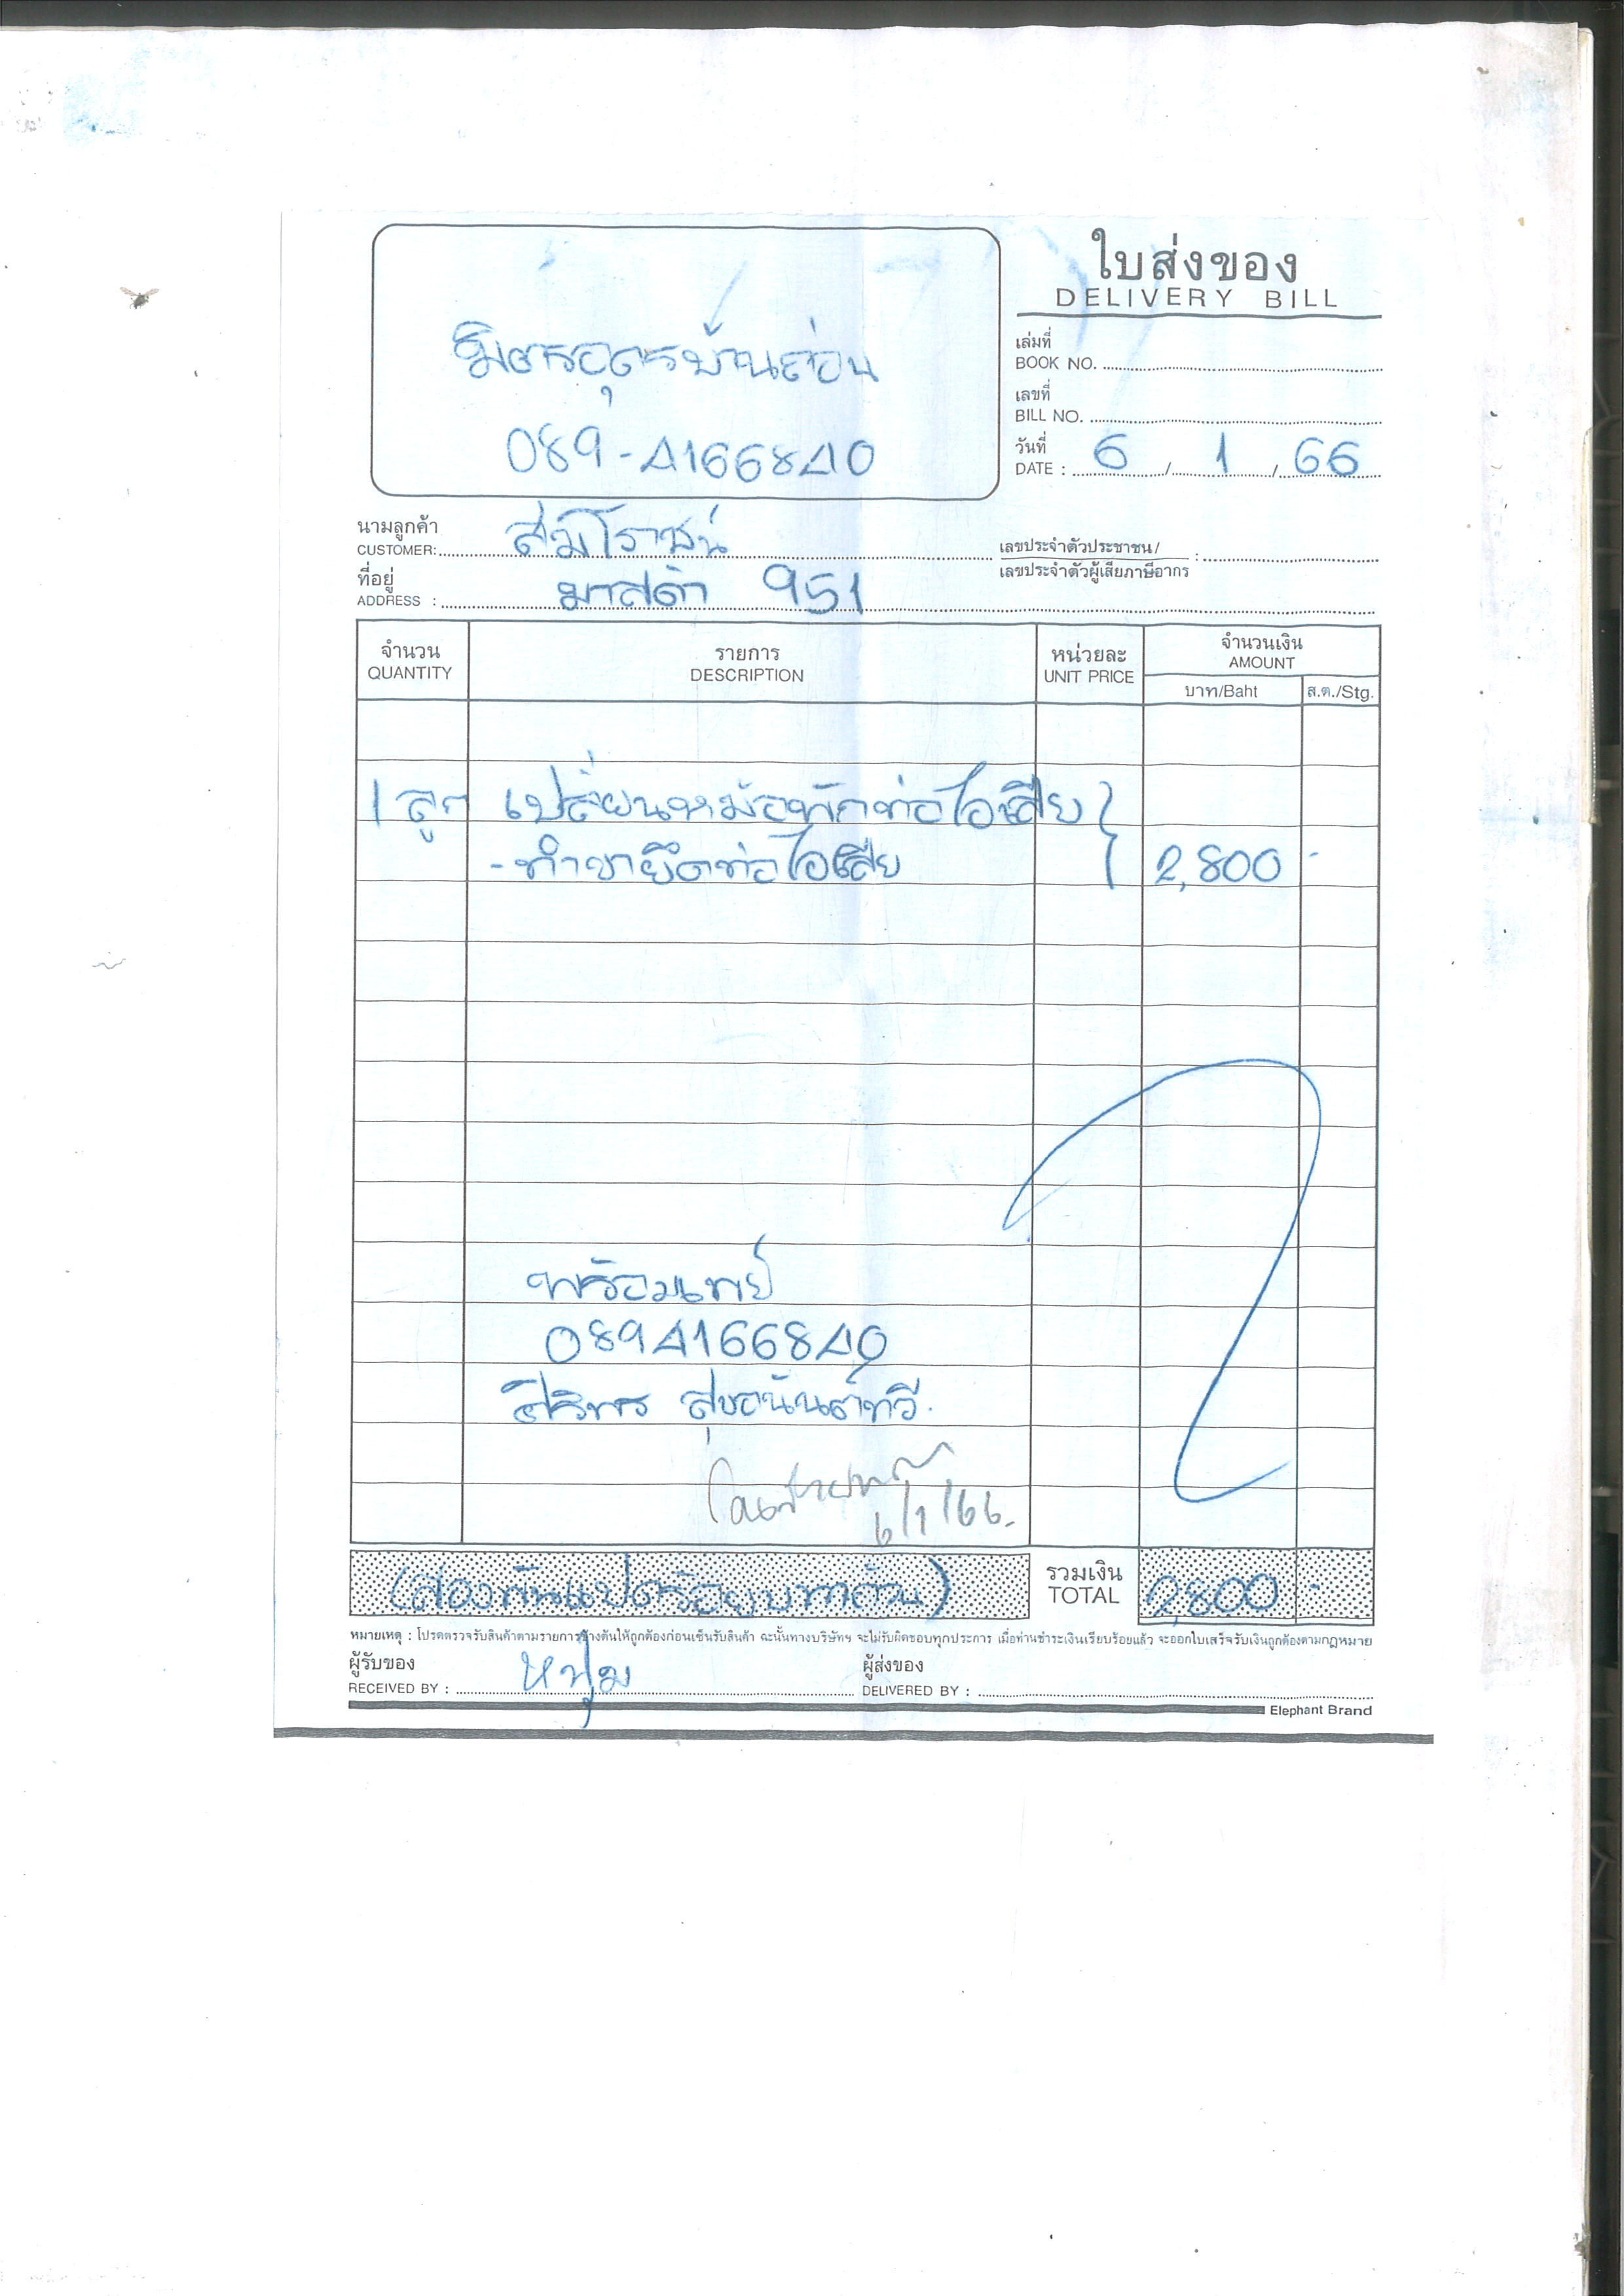 ใบส่งของ
DELIVERY BILL
มิตรอุดรบ้านถ่อน
089-4166840
เล่มที่
BOOK NO.
เลขที่
BILL NO.
วันที่
DATE : 6 / 1 / 66
นามลูกค้า
CUSTOMER: สัมโรชน์
เลขประจำตัวประชาชน/ :
เลขประจำตัวผู้เสียภาษีอากร
ที่อยู่
ADDRESS : มาสด้า 951
จำนวน รายการ หน่วยละ จำนวนเงิน
QUANTITY DESCRIPTION UNIT PRICE AMOUNT
บาท/Baht ส.ต./Stg.
1 ลูก เปลี่ยนหม้อพักท่อไอเสีย
- ทำขายึดท่อไอเสีย 2,800 -
พร้อมเพย์
0894166840
ศิริพร สุขอนันต์ทวี
6/1/66.
(สองพันแปดร้อยบาทถ้วน) รวมเงิน
TOTAL 2,800 -
หมายเหตุ : โปรดตรวจรับสินค้าตามรายการข้างต้นให้ถูกต้องก่อนเซ็นรับสินค้า ฉะนั้นทางบริษัทฯ จะไม่รับผิดชอบทุกประการ เมื่อท่านชำระเงินเรียบร้อยแล้ว จะออกใบเสร็จรับเงินถูกต้องตามกฎหมาย
ผู้รับของ
RECEIVED BY : หนุ่ม
ผู้ส่งของ
DELIVERED BY :
Elephant Brand